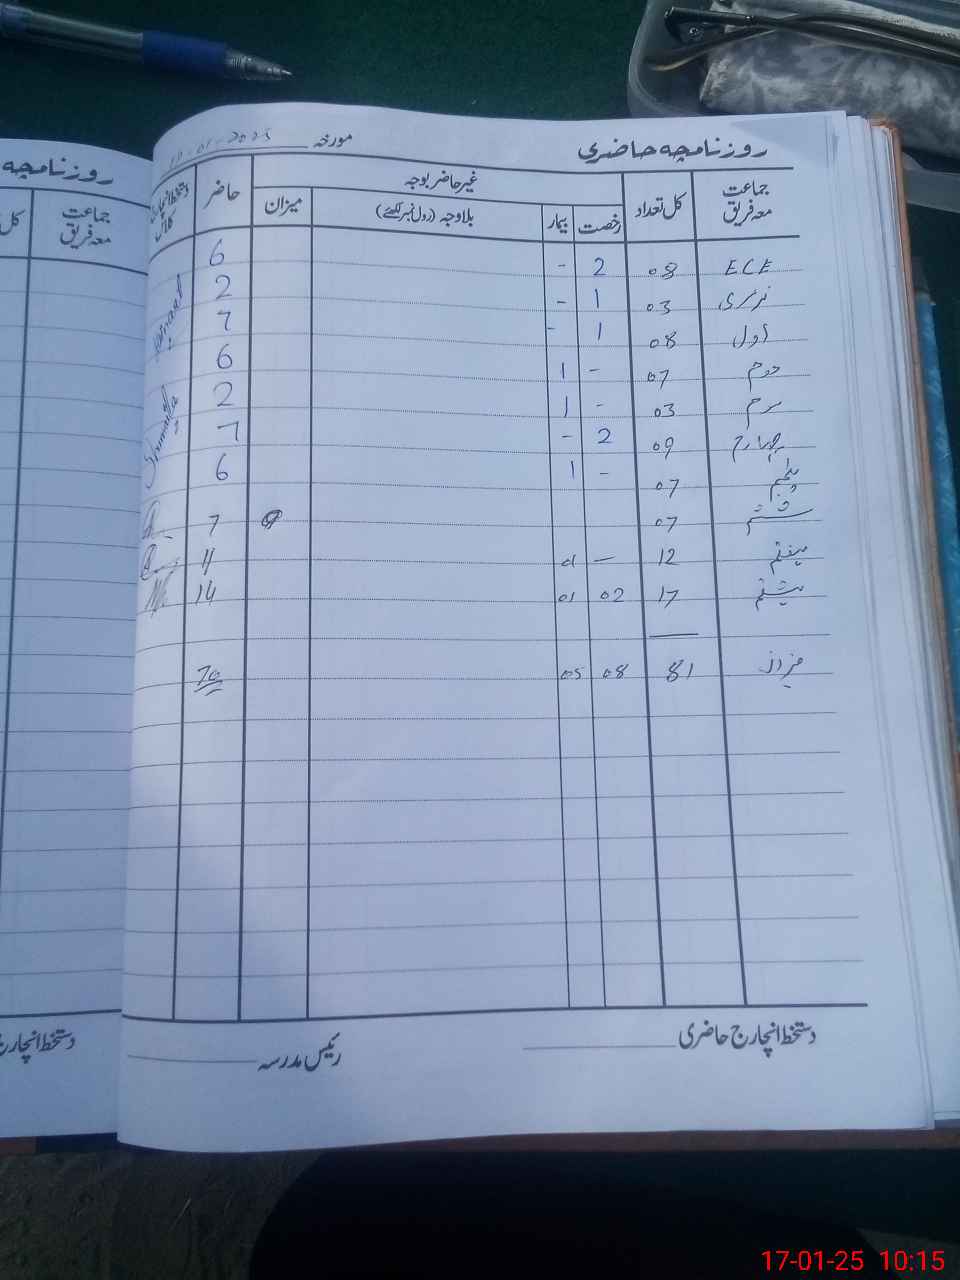 روزنامچہ حاضری مورخہ 17-01-2025
جماعت معہ فریق کل تعداد غیر حاضر بوجہ حاضر دستخط انچارج کلاس
رخصت بیمار بلاوجہ (رول نمبر لکھئے) میزان
ECE 08 2 - 6
نرسری 03 1 - 2
اول 08 1 - 7
دوم 07 - 1 6
سوم 03 - 1 2
چہارم 09 2 - 7
پنجم 07 - 1 6
ششم 07 7
ہفتم 12 — 01 11
ہشتم 17 02 01 14
میزان 81 08 05
دستخط انچارج حاضری
رئیس مدرسہ
روزنامچہ
جماعت معہ فریق
دستخط انچارج
17-01-25 10:15